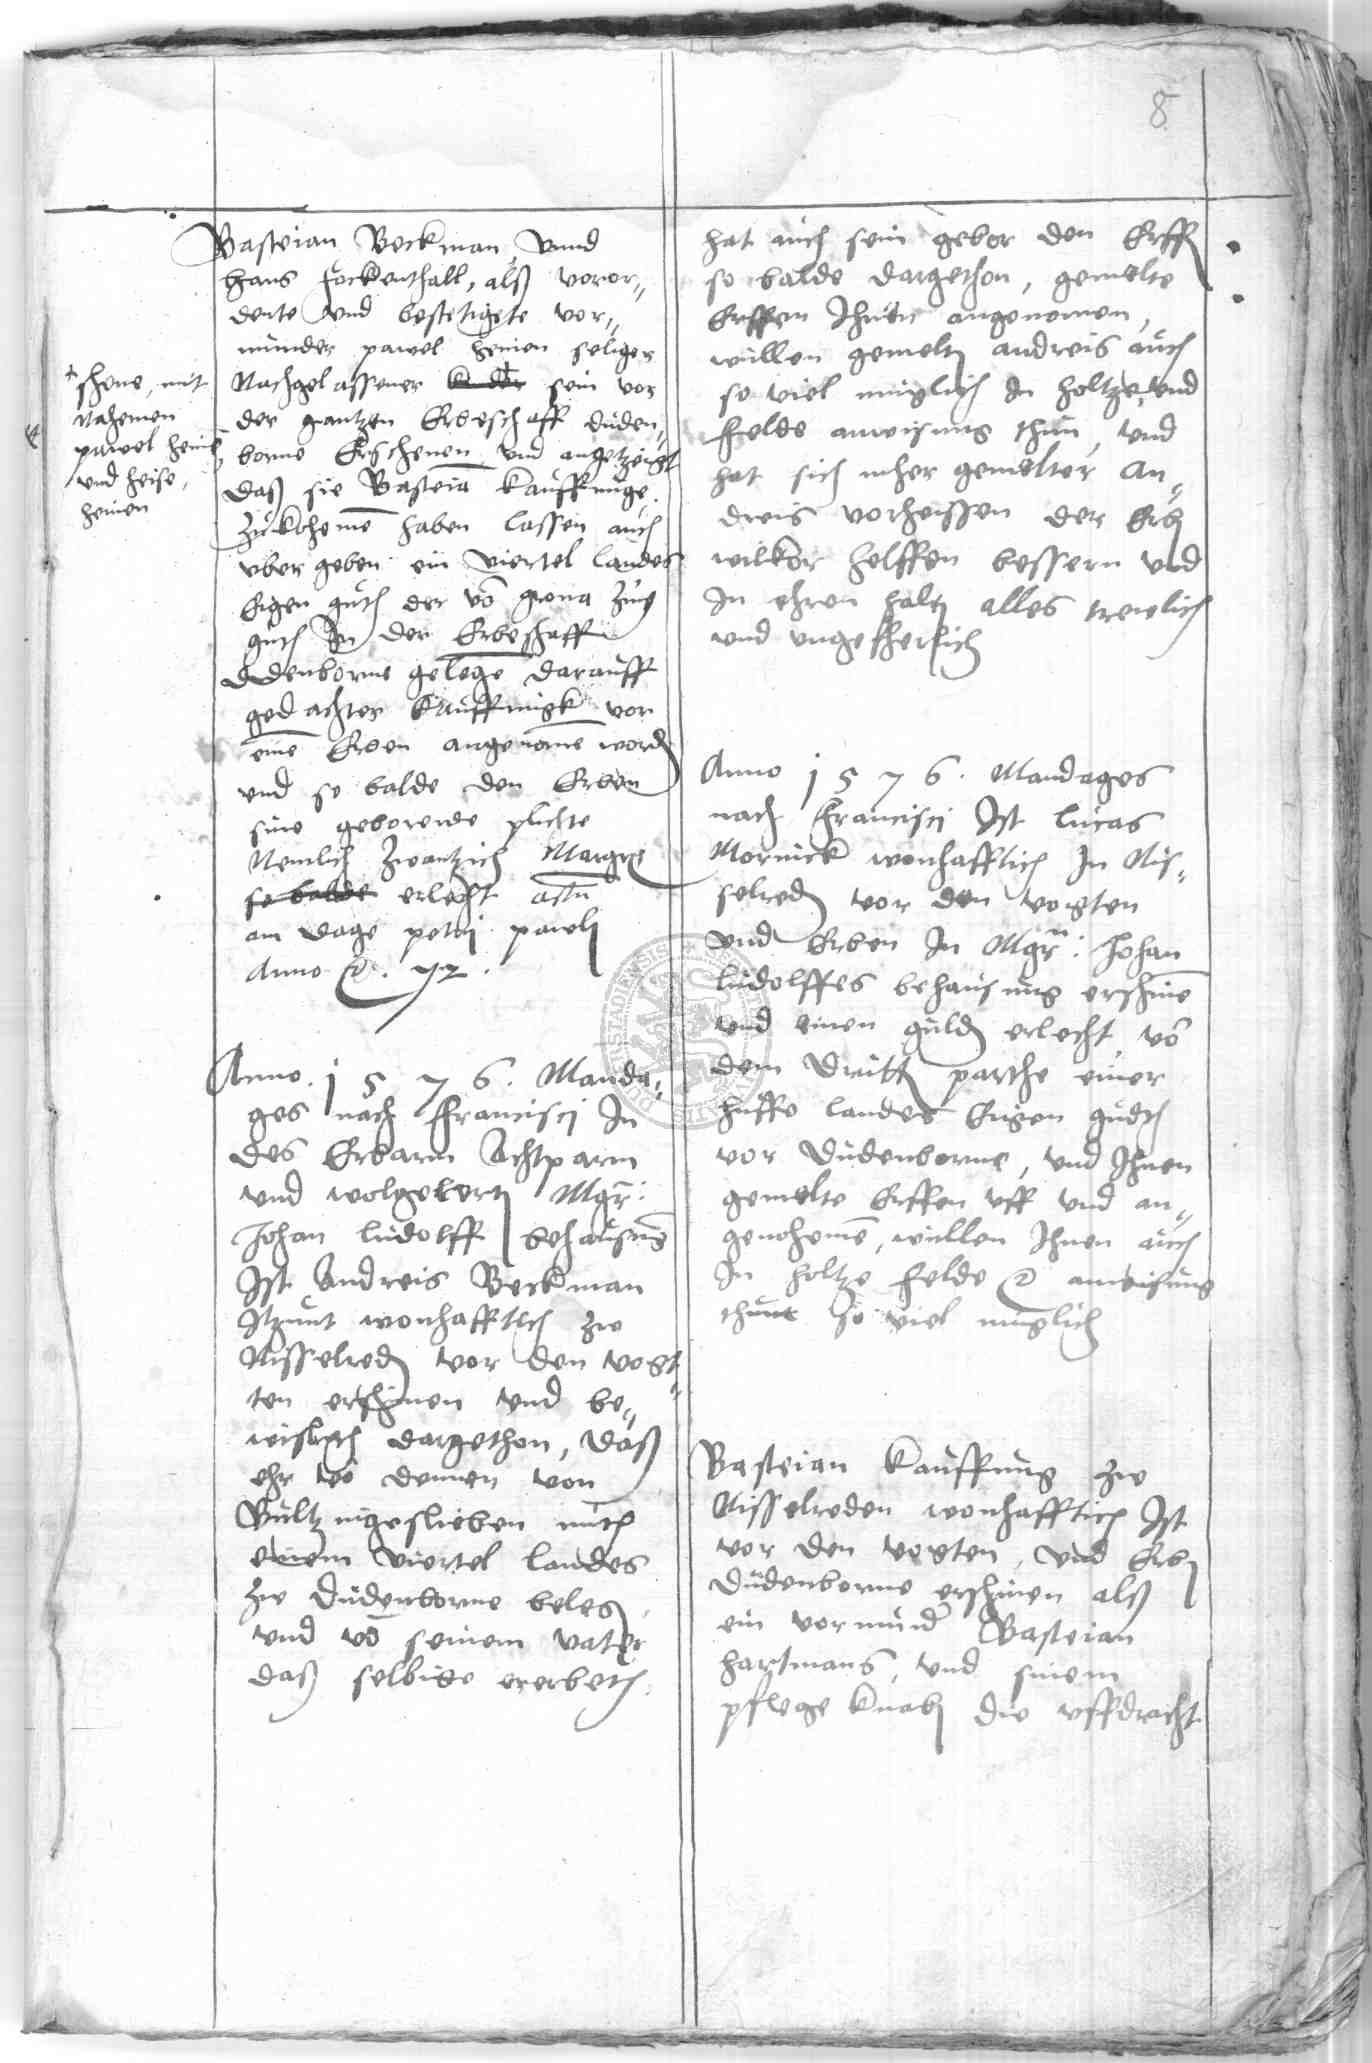 8
Basteian Beckman Vnnd
hans fockenthall, alß voror„
dente vnd bestetigete vor„
munder pawel heinen seliger
Nachgelassener kinder sein vor
der gantzen Erbeschafft duden„
borne Erschenen vnd angetzeigt
daß sie Basteia kauffunge
zukoheme haben lassen auch
vbergeben ein viertel landes
Eigen guth der vo
guth In der Erbeschafft
dudenborne gelege darauff
gedachter kauffungk vor
eine Erben angenome word
vnd so balde den Erben
sine geborende plichte
Nemlich zwantzich Margr
so balde erlecht actu
am dage petri pawli
Anno 72.
+
shene, mit
Nahemen
pawel heine
vnd heise,
heinen
Anno. 1576. Manda„
ges nach Francisci In
des Erbarn Achtparn
vnd wolgelert Mgr:
Johan ludolff behausung
Ist Andreis Beckman
Itzunt wonhafftich zue
Nisselred vor den vogt„
ten erschinen vnd be„
wislich dargethon, daß
ehr vo dennen von
Bultzingeslieben mith
einem viertel landes
zue Dudenborne beles
vnd vo seinem vater
daß selbige ererbeth.
hat auch sein gebor den Erffen
so balde dargethon, gemelte
Erffen Ihnen angenomen,
wullen gemelt andreis auch
so viel muglich In holtze vnd
felde anweisung thun, vnd
hat sich mher gemelter An„
dreis vorheissen der Erb
wilkor helffen bessern vnd
In ehren halt alles trewlich
vnd vngefherlich
Anno 1576. Mandages
nach Francisci Ist lucas
Mornick wonhafftich In Nis„
selred vor den vogten
vnd Erben In Mgr: Johan
ludolffes behausung erschine
vnd einen guld erlecht vo
dem dritt parthe einer
huffe landes Eigen gudth
vor Dudenborne, vnd Ihnen
gemelte Erffen vff vnd an„
genoheme, wullen Ihnen auch
In holtze felde anweisung
thun so viel muglich
Basteian kauffung zue
Nisselreden wonhafftich Ist
vor den vogten, vnd Erb
Dudenborne erschinen alß
ein vormunder Basteian
hartmans, vnd sinem
pflege knab die vffdracht